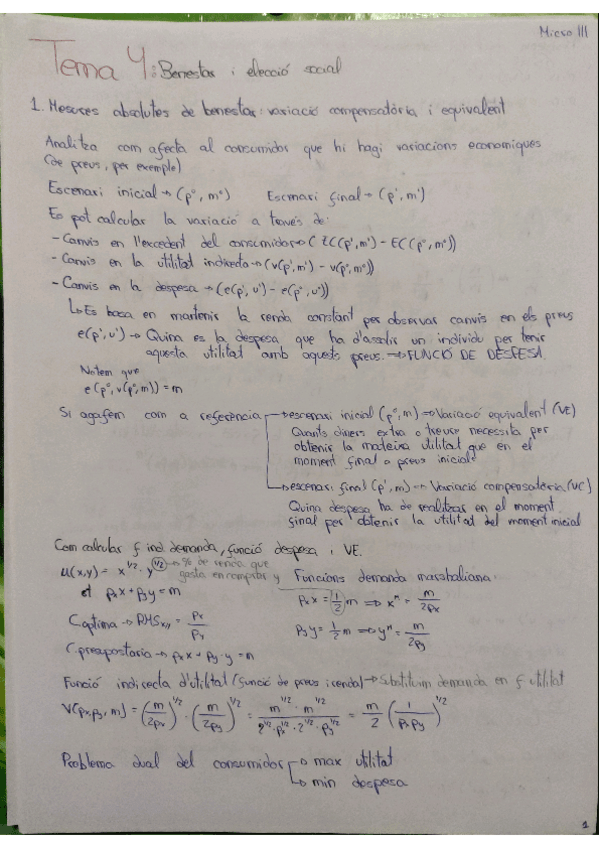 Micro III
Tema 4: Benestar i elecció social
1. Mesures absolutes de benestar: variació compensatòria i equivalent
Analitza com afecta al consumidor que hi hagi variacions economiques
(de preus, per exemple)
Escenari inicial → (p°, m°) Escenari final → (p', m')
Es pot calcular la variació a través de:
- Canvis en l'excedent del consumidor → (EC(p', m') - EC(p°, m°))
- Canvis en la utilitat indirecta → (v(p', m') - v(p°, m°))
- Canvis en la despesa → (e(p', u') - e(p°, u°))
↳ Es basa en mantenir la renda constant per observar canvis en els preus
e(p', u') → Quina es la despesa que ha d'assolir un individu per tenir
aquesta utilitat amb aquets preus. → FUNCIÓ DE DESPESA.
Notem que
e(p°, v(p°, m)) = m
Si agafem com a referència → escenari inicial (p°, m) → Variació equivalent (VE)
Quants diners extra o treure necessita per
obtenir la mateixa utilitat que en el
moment final a preus inicials
→ escenari final (p', m) → Variació compensatòria (VC)
Quina despesa ha de realitzar en el moment
final per obtenir la utilitat del moment inicial
Com calcular f ind. demanda, funció despesa i VE.
u(x,y) = x^1/2 · y^1/2 → % de renda que
gasta en comprar y
Funcions demanda marshaliana:
pxx + pyy = m
pxx = 1/2 m ⇒ x^m = m/2px
C òptima → RMS x,y = px/py
pyy = 1/2 m ⇒ y^m = m/2py
C pressupostària → pxx + py·y = m
Funció indirecta d'utilitat (funció de preus i renda) → Substituim demanda en f utilitat
V(px,py,m) = (m/2px)^1/2 · (m/2py)^1/2 = m^1/2 · m^1/2 / 2^1/2 · px^1/2 · 2^1/2 · py^1/2 = m/2 (1/pxpy)^1/2
Problema dual del consumidor → max utilitat
→ min despesa
1